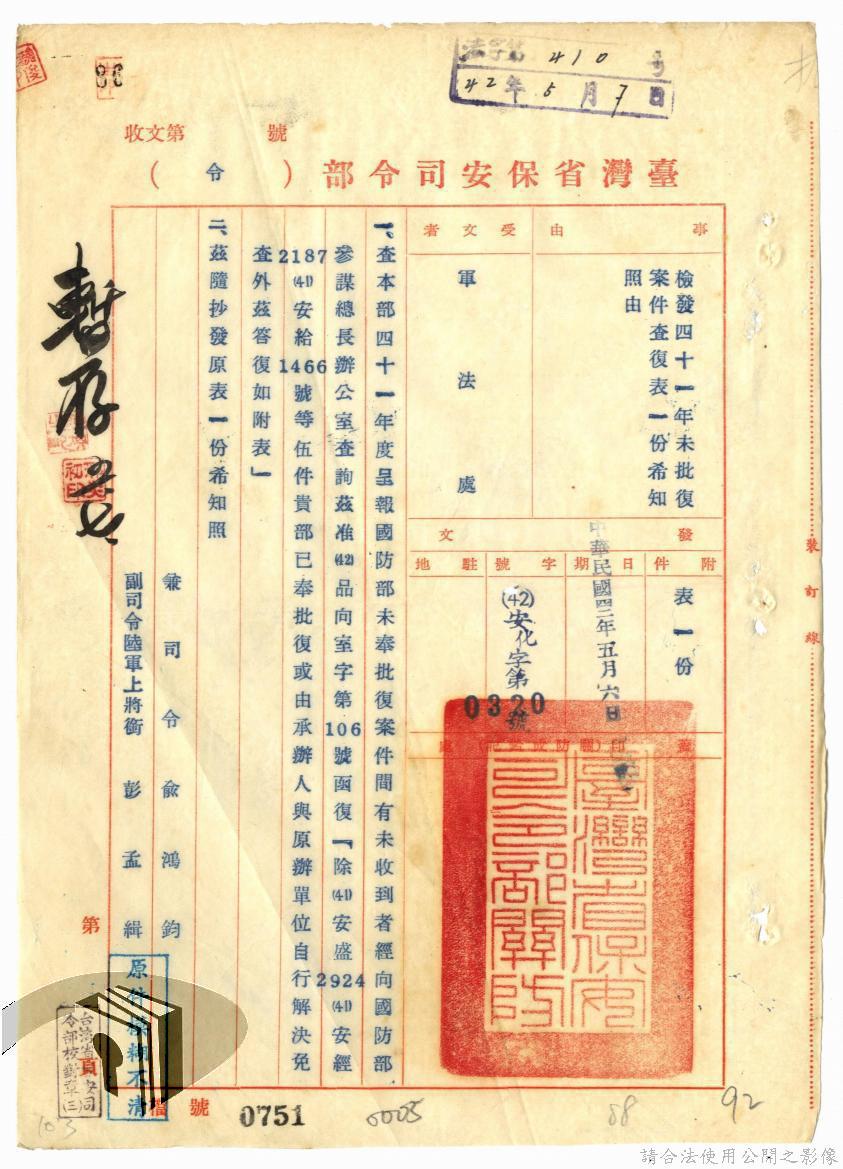 法字第410号
42年5月7日
86
收文第 號
臺灣省保安司令部（令）
事由
檢發四十一年未批復
案件查復表一份希知
照由
受文者
軍法處
發文
附件
表一份
日期
中華民國四二年五月六日
字號
(42)安化字第
0320
號
駐地
一、查本部四十一年度呈報國防部未奉批復案件間有未收到者經向國防部、
參謀總長辦公室查詢茲准(42)品向室字第106號函復「除(41)安盛2924(41)安經
2187(41)安給1466號等伍件貴部已奉批復或由承辦人與原辦單位自行解決免
查外茲答復如附表」
二、茲隨抄發原表一份希知照
兼司令俞鴻鈞
副司令陸軍上將銜彭孟緝
臺灣省保安司令部關防
裝訂線
暫存
原件模糊不清
台灣省保安司
令部校對章(三)
第
頁
檔號
0751
0005
88
92
103
請合法使用公開之影像